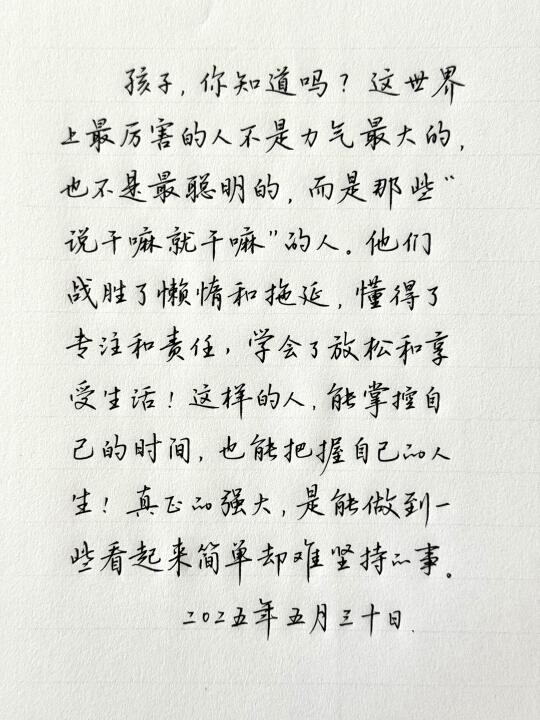 孩子，你知道吗？这世界
上最厉害的人不是力气最大的，
也不是最聪明的，而是那些“
说干嘛就干嘛”的人。他们
战胜了懒惰和拖延，懂得了
专注和责任，学会了放松和享
受生活！这样的人，能掌控自
己的时间，也能把握自己的人
生！真正的强大，是能做到一
些看起来简单却难坚持的事。
二〇二五年五月三十日.